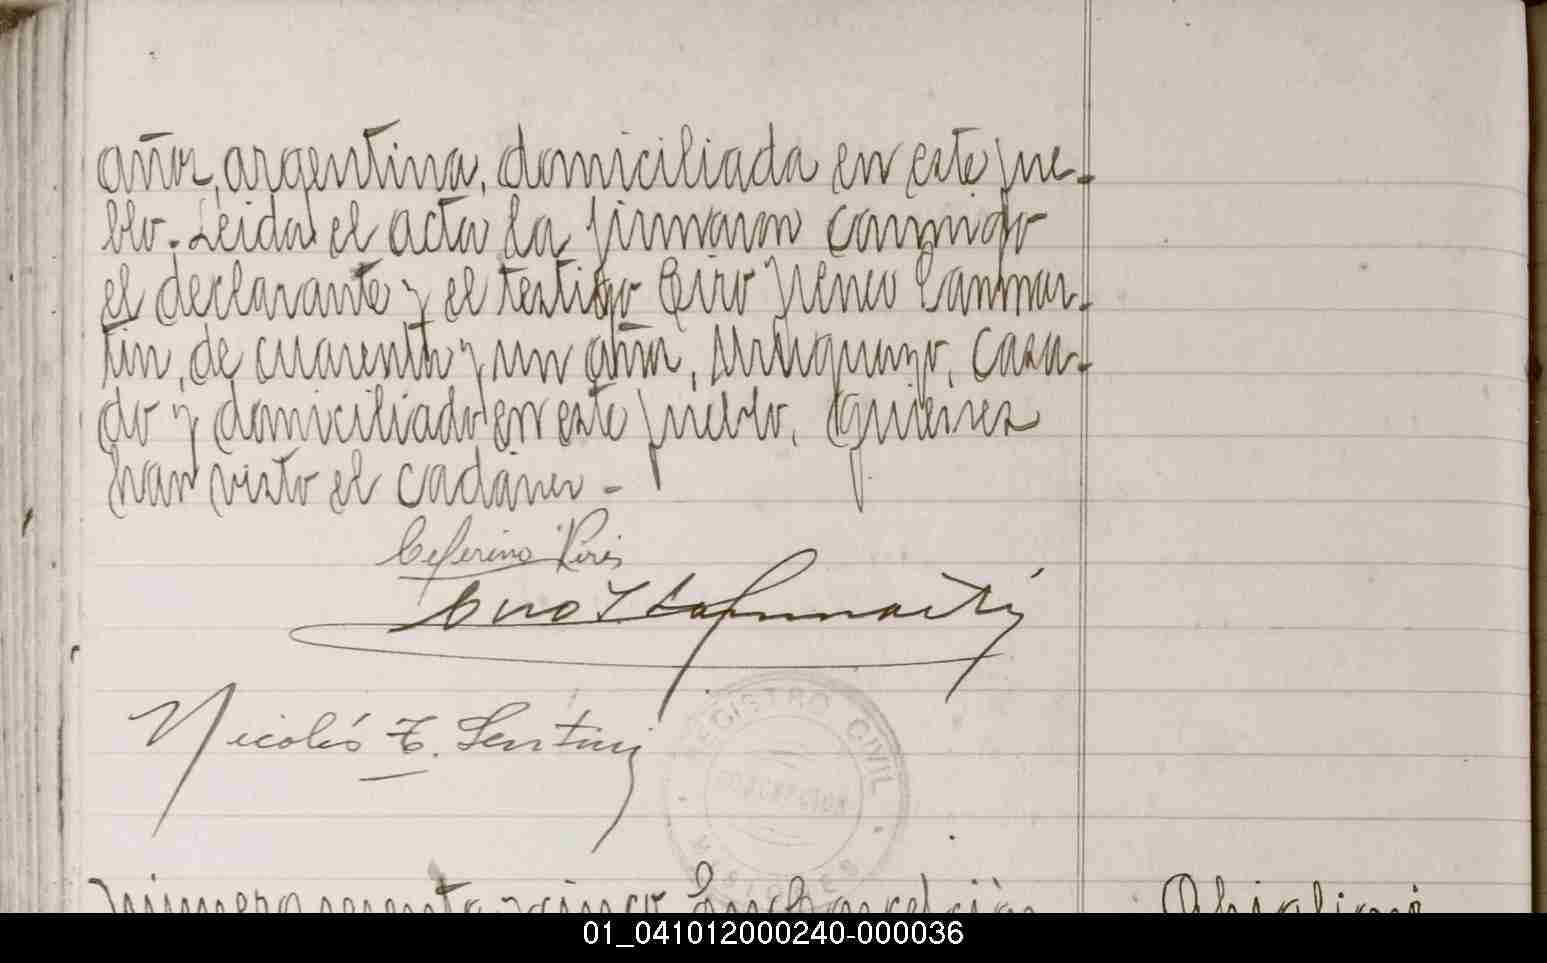 años, argentina, domiciliada en este pue-
blo. Leida el acta la firmaron conmigo
el declarante y el testigo Ciro Ireneo Sanmar-
tin, de cuarenta y un años, uruguayo, casa-
do y domiciliado en este pueblo, quienes
han visto el cadáver -
Ceferino Piris
Ciro I Sanmartin
Nicolás E. Sentini
REGISTRO CIVIL
MISIONES
Número noventa y cinco
01_041012000240-000036